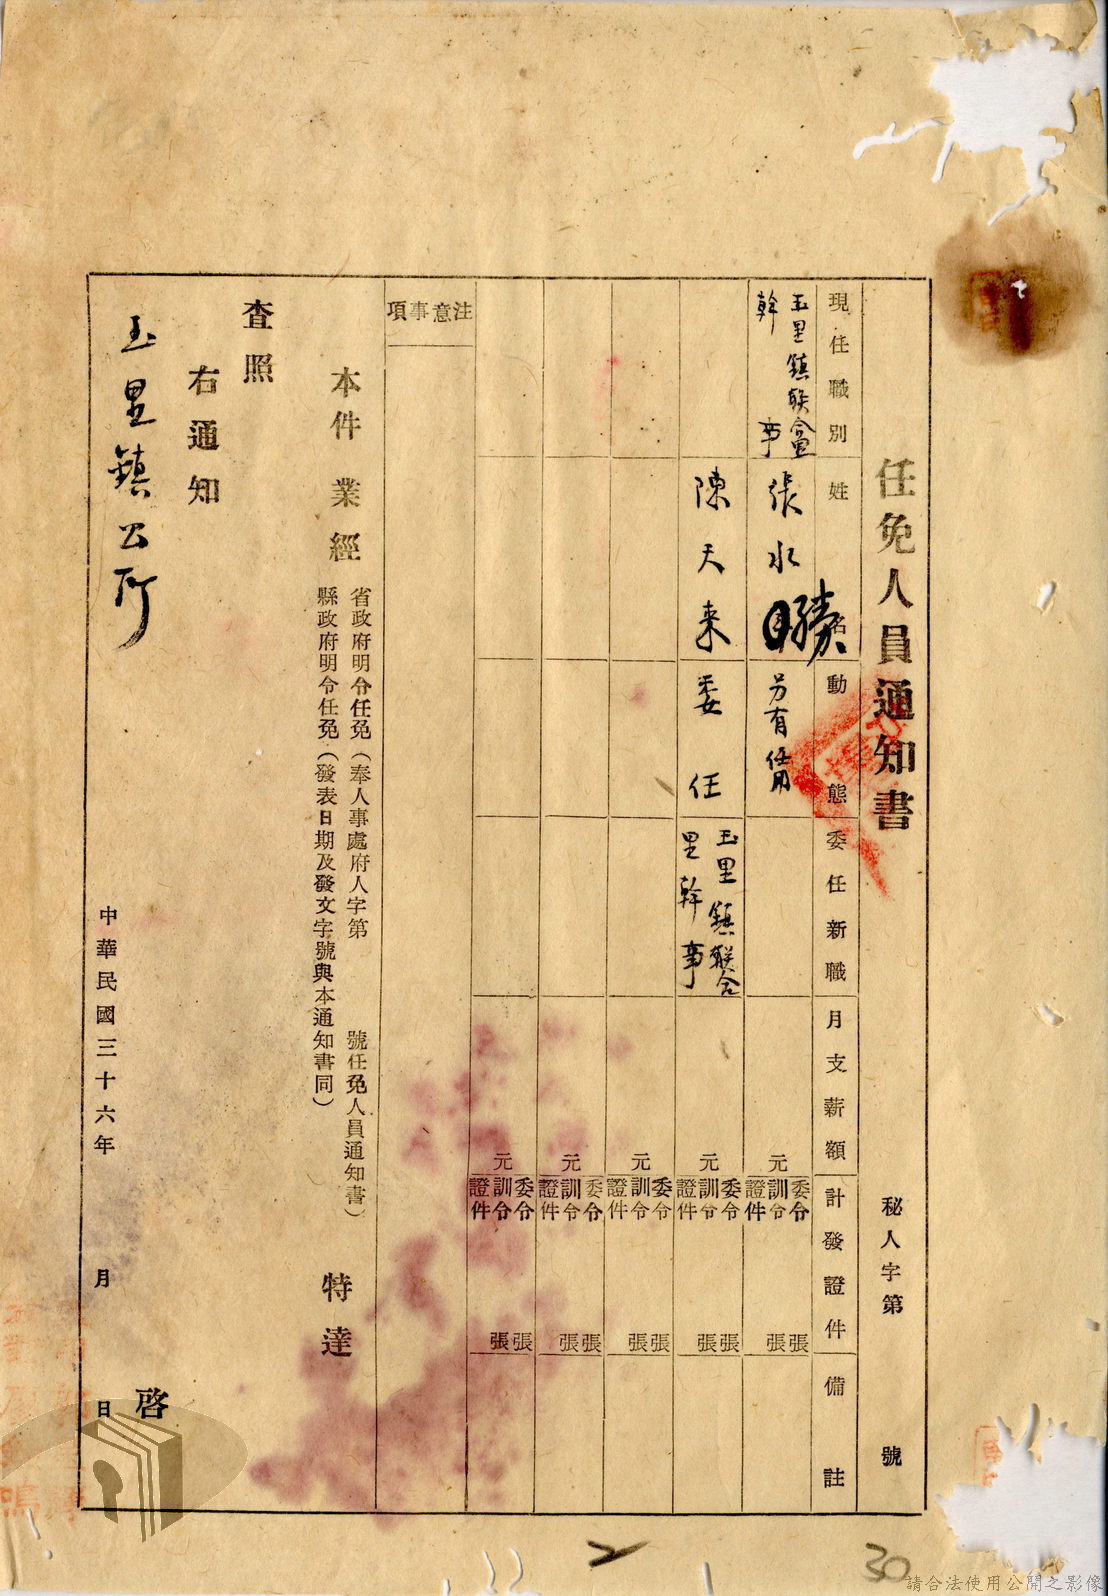 任免人員通知書
秘人字第　號
現任職別
姓名
動態
委任新職
月支薪額
計發證件
備註
玉里鎮聯合里
幹事
張水勝
另有任用
元
委令　張
訓令　張
證件
陳天來
委任
玉里鎮聯合
里幹事
元
委令　張
訓令　張
證件
元
委令　張
訓令　張
證件
元
委令　張
訓令　張
證件
元
委令　張
訓令　張
證件
注意事項
本件業經
省政府明令任免（奉人事處府人字第　號任免人員通知書）
縣政府明令任免（發表日期及發文字號與本通知書同）
特達
查照
右通知
玉里鎮公所
啓
中華民國三十六年　月　日
2
30
請合法使用公開之影像